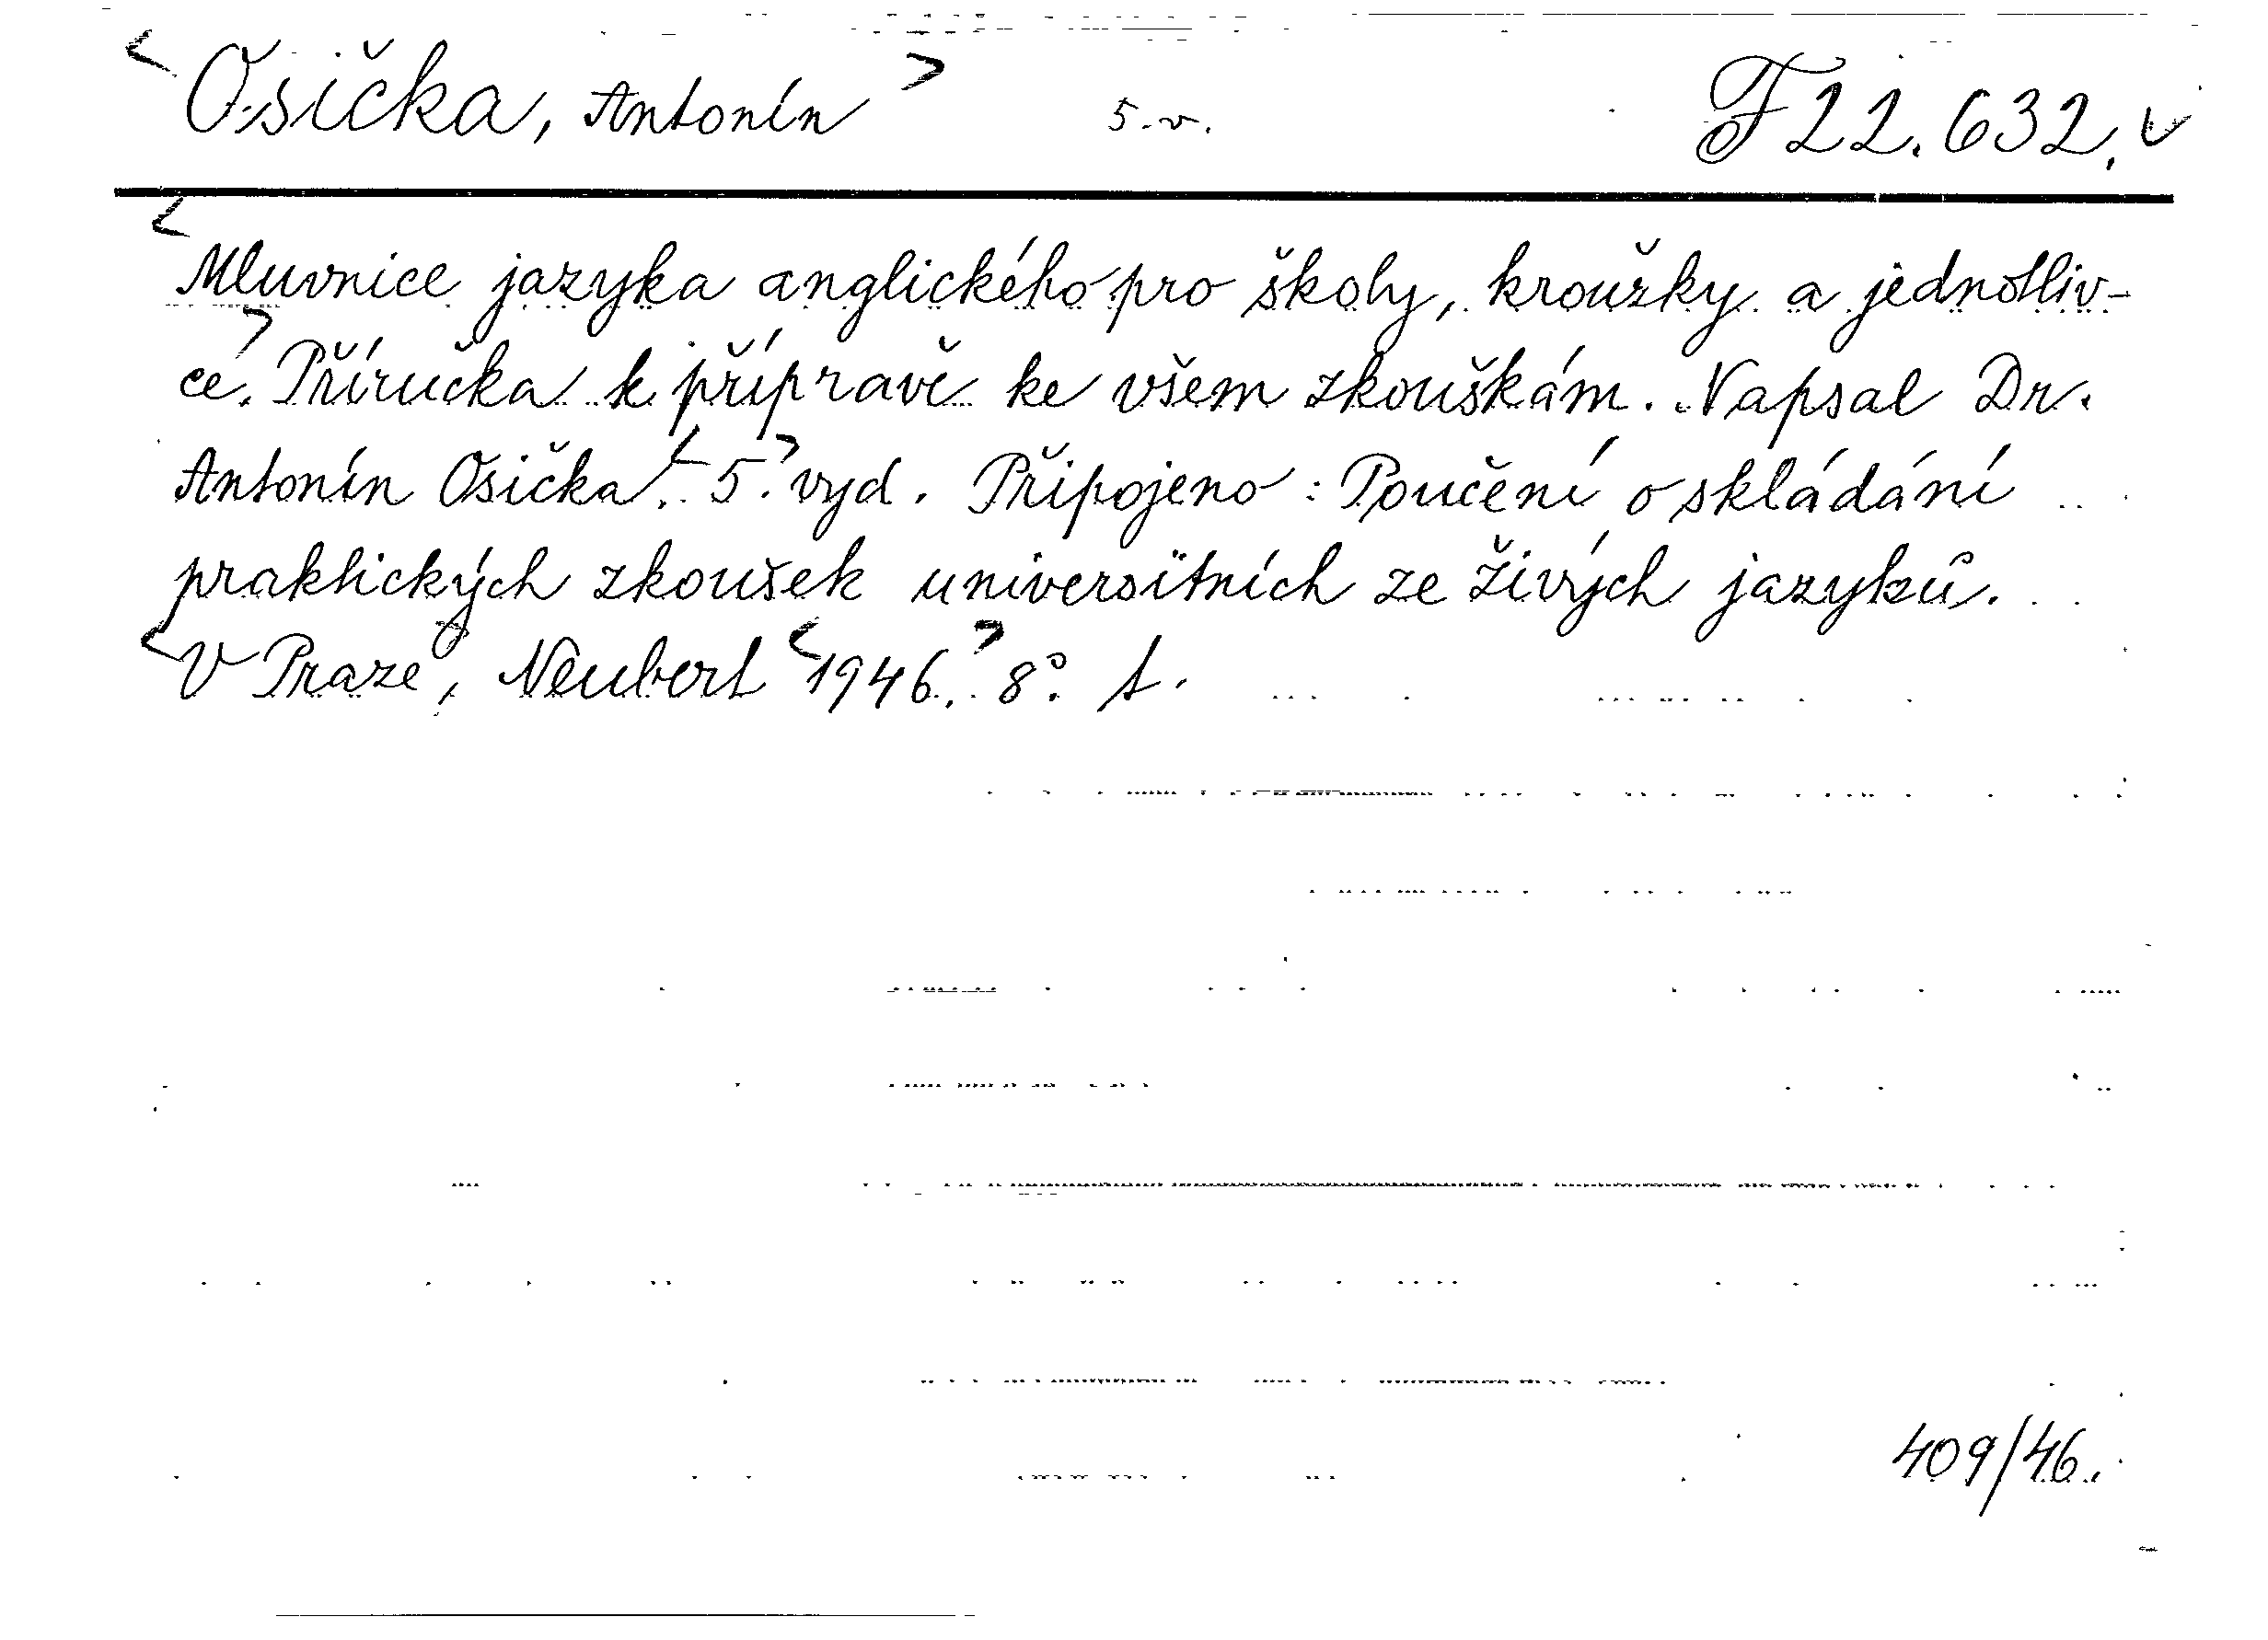 <Osička, Antonín> 5.v. F 22.632.v
<Mluvnice jazyka anglického pro školy, kroužky a jednotliv-
ce.> Příručka k přípravě ke všem zkouškám. Napsal Dr.
Antonín Osička. <5.> vyd. Připojeno: Poučení o skládání
praktických zkoušek universitních ze živých jazyků.
<V Praze, Neubert <1946.> 8°. t.
409/46.